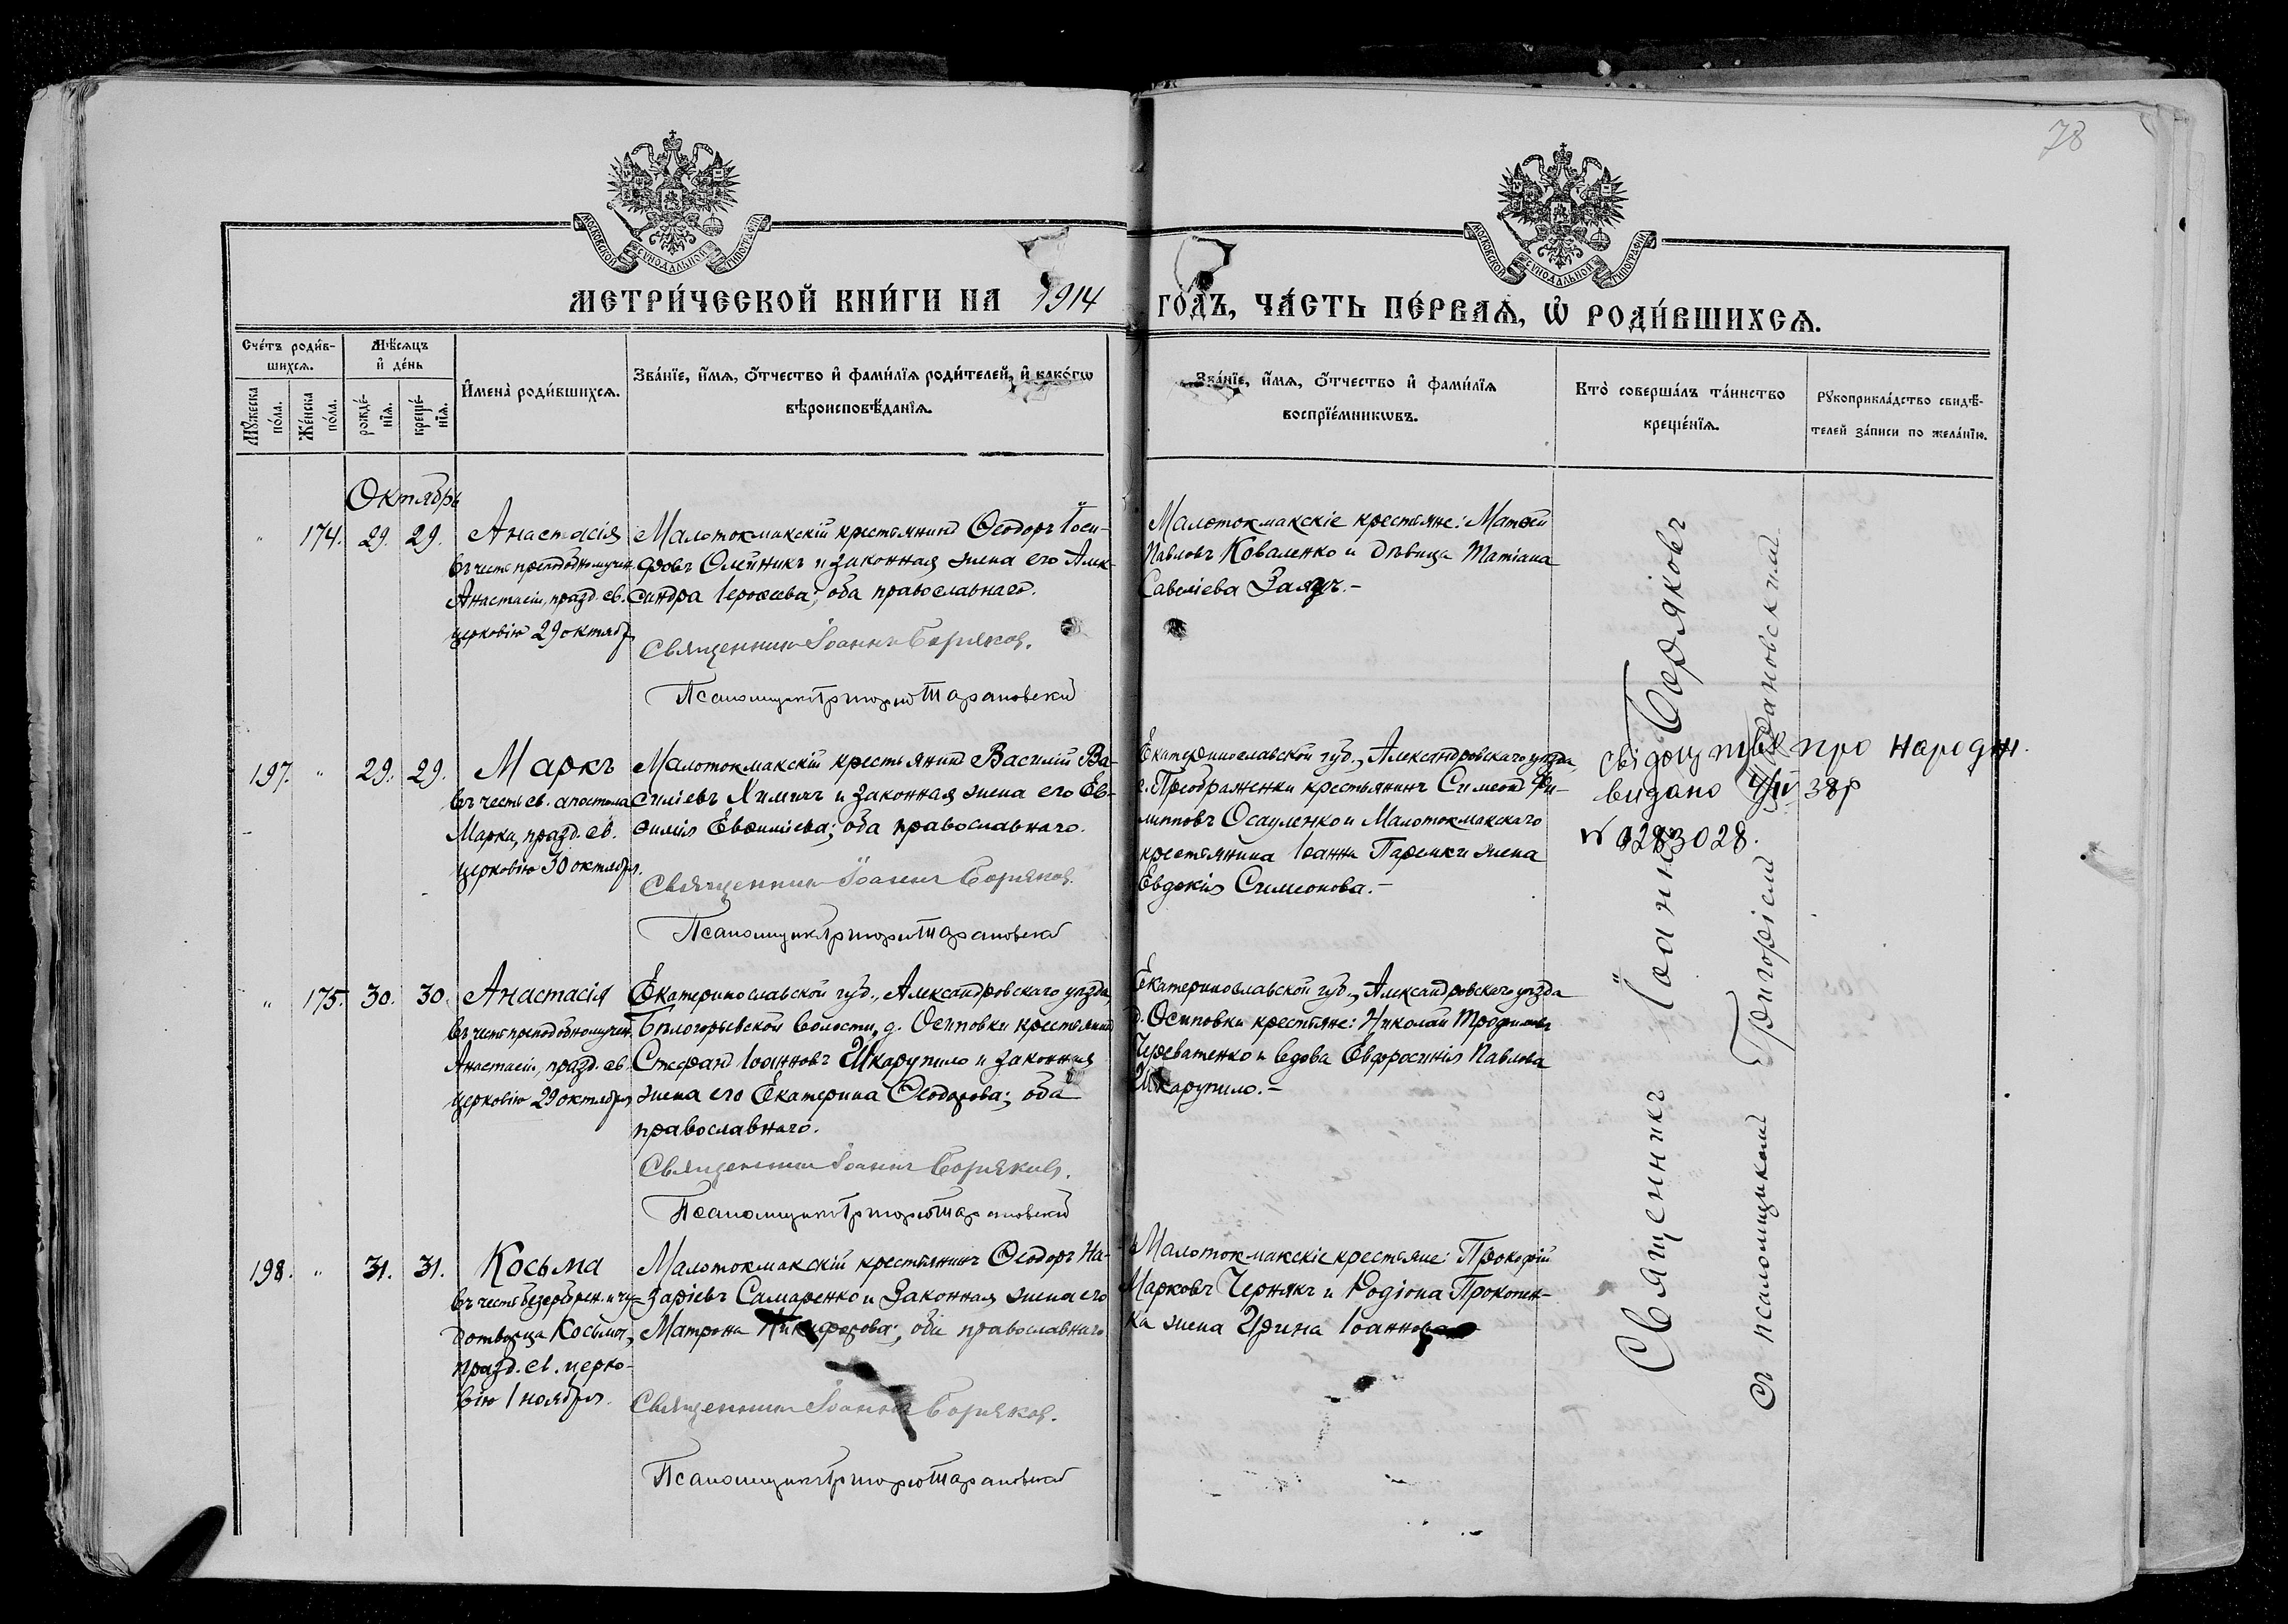 78
МОСКОВСКОЙ СѴНОДАЛЬНОЙ ТИПОГРАФІИ
МОСКОВСКОЙ СѴНОДАЛЬНОЙ ТИПОГРАФІИ
МЕТРИ́ЧЕСКОЙ КНИ́ГИ НА 1914 ГО́ДЪ, ЧА́СТЬ ПЕ́РВАЯ, Ѡ҆ РОДИ́ВШИХСЯ.
Сче́тъ роди́в-
шихся.
Му́жеска по́ла.
Же́нска по́ла.
Мѣ́сяцъ
и҆ де́нь
рожде́-
нїя.
креще́-
нїя.
И҆мена̀ роди́вшихся.
Зва́нїе, и҆́мя, ѻ҆́тчество и҆ фами́лїя роди́телей, и҆ како́гѡ
вѣроисповѣ́данїя.
Зва́нїе, и҆́мя, ѻ҆́тчество и҆ фами́лїя
воспрїе́мникѡвъ.
Кто̀ соверша́лъ та́инство
креще́нїя.
Рꙋкоприкла́дство свидѣ́-
телей за́писи по жела́нїю.
Октябрь
" 174. 29. 29. Анастасія
въ честь преподобномучен.
Анастасіи, празд. св.
церковію 29 октябр.
Малотокмакскій крестьянинъ Ѳеодоръ Іоси-
фовъ Олейникъ и законная жена его Алек-
сандра Іероѳеева; оба православнаго.
Священникъ Іоаннъ Боряковъ.
Псаломщикъ Григорій Тарановскій
Малотокмакскіе крестьяне: Матѳей
Павловъ Коваленко и дѣвица Татіана
Савеліева Заяцъ.-
197. " 29. 29. Маркъ
въ честь св. апостола
Марка, празд. св.
церковію 30 октября.
Малотокмакскій крестьянинъ Василій Ва-
силіевъ Химичъ и законная жена его Ев-
ѳимія Евѳиміева; оба православнаго.
Священникъ Іоаннъ Боряковъ.
Псаломщикъ Григорій Тарановскій
Екатеринославской губ., Александровскаго уѣзда,
с. Преображенки крестьянинъ Симеонъ Фи-
липповъ Осауленко и Малотокмакскаго
крестьянина Іоанна жена
Евдокія Симеонова.-
свідоцтво про народж.
видано 4/IV 38р
№ 0283028.
" 175. 30. 30. Анастасія
въ честь преподобномучен.
Анастасіи, празд. св.
церковію 29 октября
Екатеринославской губ., Александровскаго уѣзда,
Бѣлогорьевской волости, д. Осиповки крестьянинъ
Стефанъ Іоанновъ Шкарупило и законная
жена его Екатерина Ѳеодорова; оба
православнаго.
Священникъ Іоаннъ Боряковъ.
Псаломщикъ Григорій Тарановскій
Екатеринославской губ., Александровскаго уѣзда
д. Осиповки крестьяне: Николай Трофимовъ
Череватенко и вдова Евфросинія Павлова
Шкарупило.-
198. " 31. 31. Косьма
въ честь безсребрен. и чу-
дотворца Косьмы,
празд. св. церко-
вію 1 ноября.
Малотокмакскій крестьянинъ Ѳеодоръ На-
заріевъ Самаренко и законная жена его
Матрона Никифорова; оба православнаго
Священникъ Іоаннъ Боряковъ.
Псаломщикъ Григорій Тарановскій
Малотокмакскіе крестьяне: Прокофій
Марковъ Чернякъ и Родіона Прокопен-
ка жена Ирина Іоаннова
Священникъ Іоаннъ Боряковъ
съ псаломщикомъ Григоріемъ Тарановскимъ